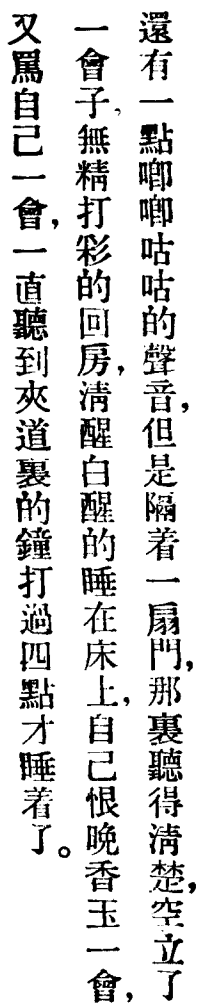 還有一點唧唧咕咕的聲音，但是隔着一扇門，那裏聽得清楚，空立了
一會子，無精打彩的回房，清醒白醒的睡在床上，自己恨晚香玉一會，
又罵自己一會，一直聽到夾道裏的鐘打過四點才睡着了。